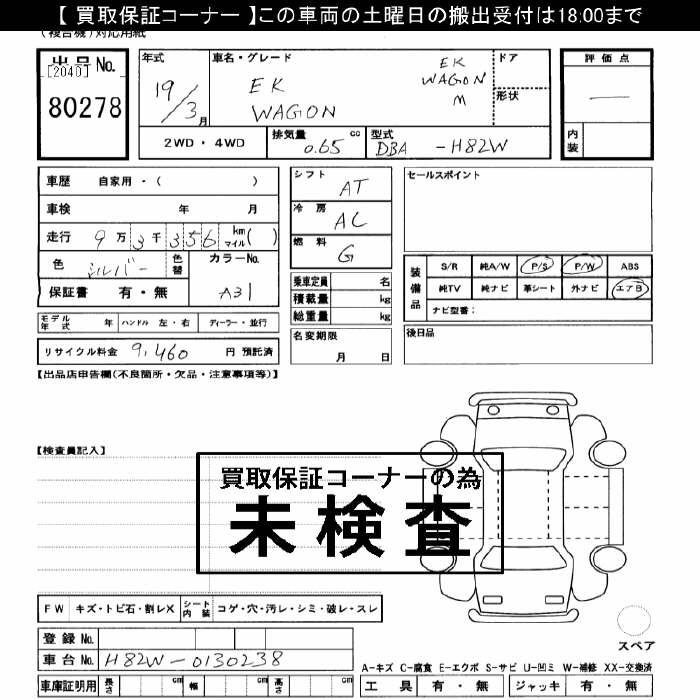 【 買取保証コーナー 】この車両の土曜日の搬出受付は18:00まで
(複合機)対応用紙
出品No.
[2040]
80278
年式
19/3月
車名・グレード
EK
WAGON
EK
WAGON
M
ドア
形状
評価点
内装
2WD・4WD
排気量
0.65
cc
型式
DBA
-H82W
車歴 自家用・( )
車検 年 月
走行 9万3千356 km マイル( )
色
シルバー
色替
カラーNo.
A31
保証書 有・無
シフト
AT
冷房
AC
燃料
G
乗車定員 名
積載量 kg
総重量 kg
名変期限
月 日
セールスポイント
装備品
S/R 純A/W P/S P/W ABS
純TV 純ナビ 革シート 外ナビ エアB
ナビ型番:
後日品
モデル年式 年 ハンドル 左・右 ディーラー・並行
リサイクル料金 9,460 円 預託済
【出品店申告欄(不良箇所・欠品・注意事項等)】
【検査員記入】
買取保証コーナーの為
未検査
FW キズ・トビ石・割レX シート内装 コゲ・穴・汚レ・シミ・破レ・スレ
登録No.
車台No. H82W-0130238
車庫証明用 長さ cm 幅 cm 高さ cm
スペア
A-キズ C-腐食 E-エクボ S-サビ U-凹ミ W-補修 XX-交換済
工具 有・無 ジャッキ 有・無